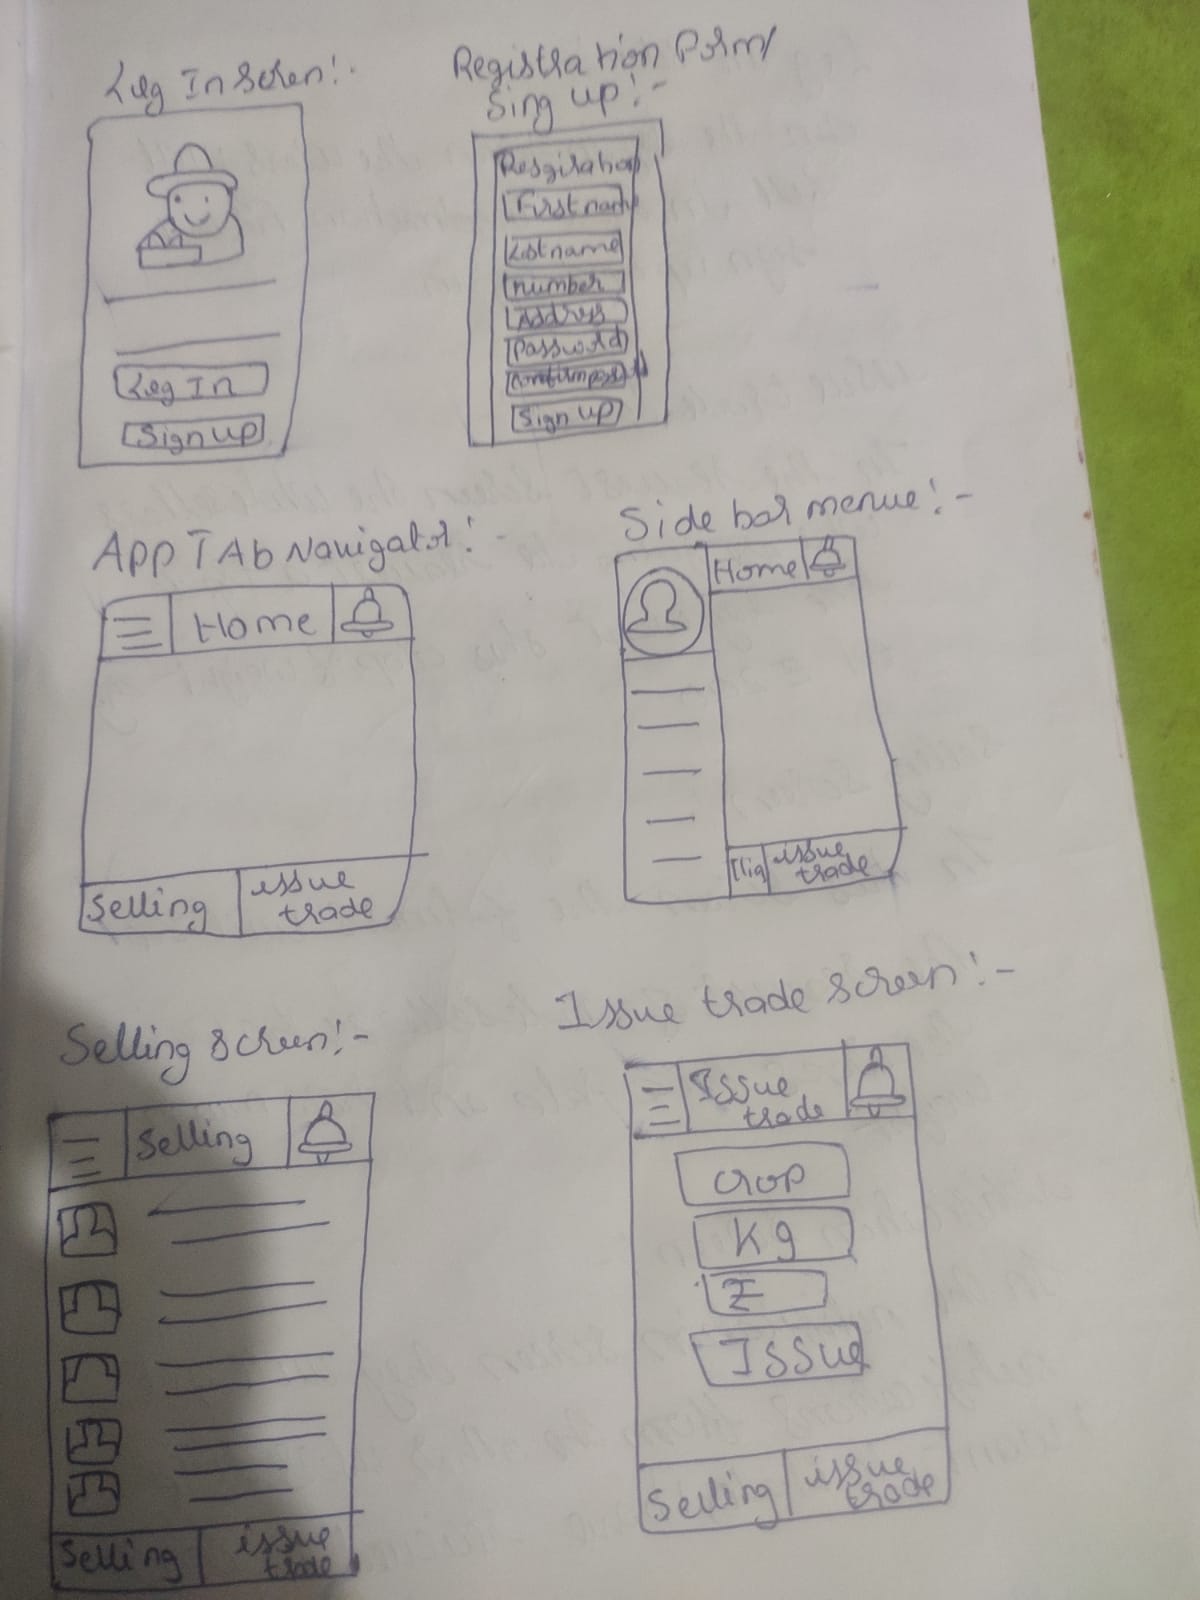 Log In Scren:-
Registration Form/
Sing up:-
Log In
Sign up
Resgiration
First name
Lastname
number
Address
Password
Sign up
App TAb Navigator:-
Home
Selling
issue
trade
Side bar menue:-
Home
issue
trade
Selling Screen:-
Selling
Selling
issue
trade
Issue trade Screen:-
Issue
trade
Crop
Kg
Issue
Selling
issue
trade